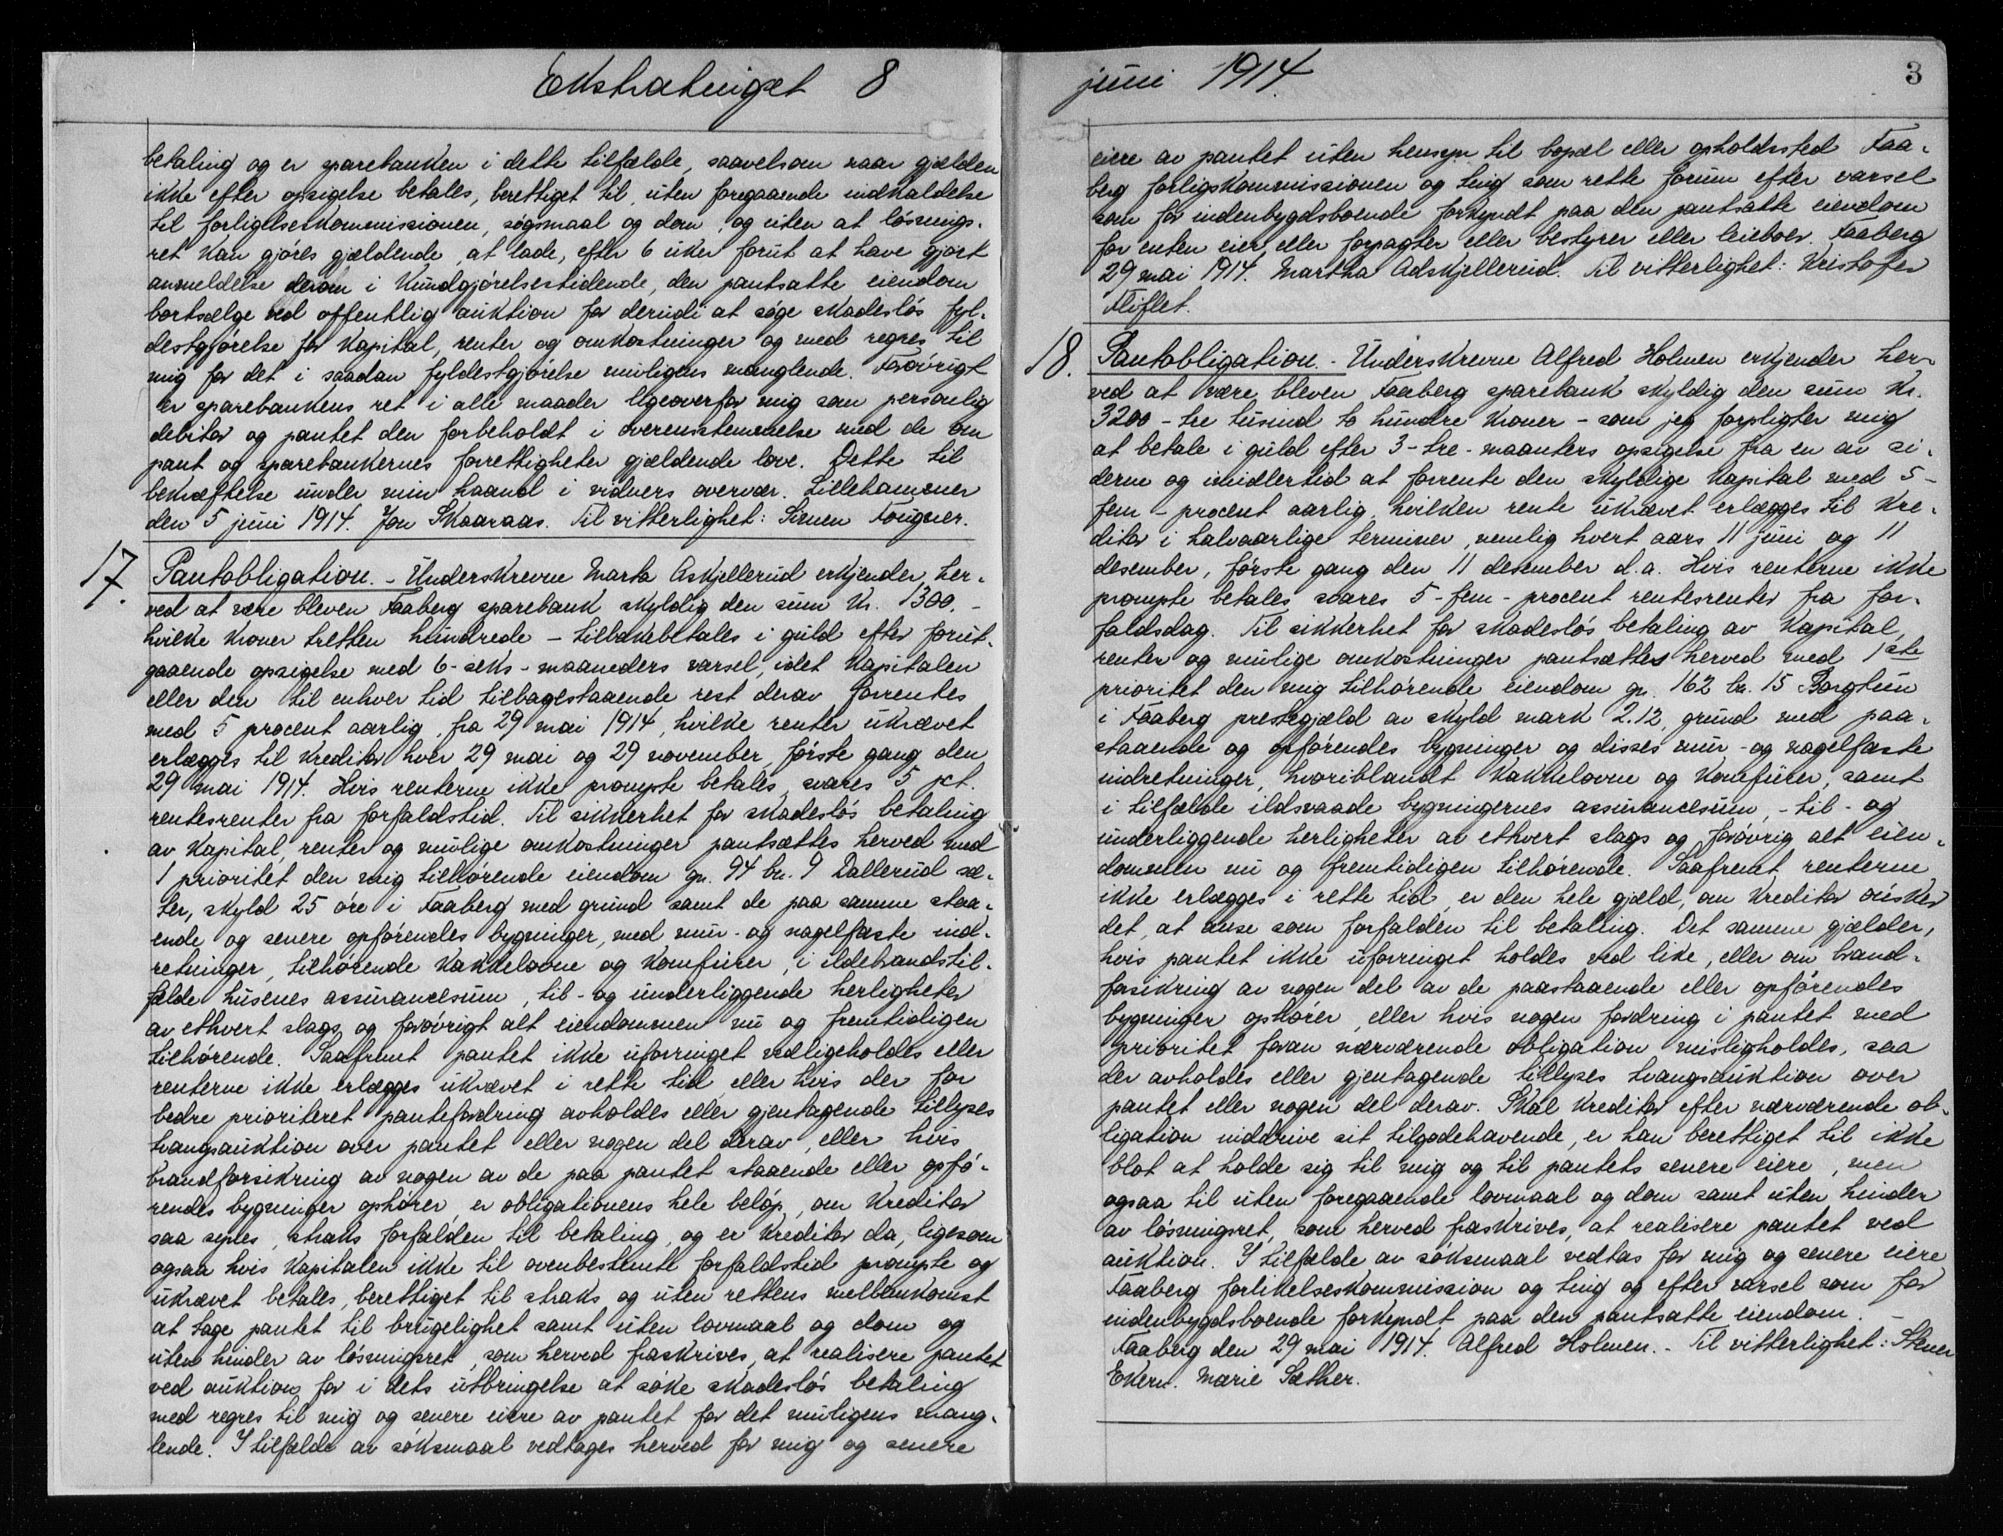 Ekstratinget 8
betaling og er sparebanken i dette tilfælde, saavelsom naar gjælden
ikke efter opsigelse betales, berettiget til, uten foregaaende indkaldelse
til forligelseskommissionen, søgsmaal og dom, og uten at løsnings-
ret kan gjøres gjældende, at lade, efter 6 uker forut at have gjort
anmeldelse derom i Kundgjørelsestidende, den pantsatte eiendom
bortsælge ved offentlig auktion for derudi at søge skadesløs fyl-
destgjørelse for kapital, renter og omkostninger og med regres til
mig for det i saadan fyldestgjørelse muligens manglende. Forøvrigt
er sparebankens ret i alle maader ligeoverfor mig som personlig
debitor og pantet den forbeholdt i overensstemmelse med de om
pant og sparebankernes forrettigheter gjældende love. Dette til
bekræftelse under min haand i vidners overvær. Lillehammer
den 5 juni 1914. Jon Skaaraas. Til vitterlighet: Simen Fougner.
17. Pantobligation. - Underskrevne Marta Askjellerud erkjender her-
ved at være bleven Faaberg sparebank skyldig den sum kr. 1300. -
hvilke kroner tretten hundrede - tilbakebetales i guld efter forut-
gaaende opsigelse med 6-seks-maaneders varsel, idet kapitalen
eller den til enhver tid tilbagestaaende rest derav forrentes
med 5 procent aarlig, fra 29 mai 1914, hvilke renter ukrævet
erlægges til kreditor hver 29 mai og 29 november, første gang den
29 mai 1914. Hvis renterne ikke prompte betales, svares 5 pct.
rentesrenter fra forfaldstid. Til sikkerhet for skadesløs betaling
av kapital, renter og mulige omkostninger pantsættes herved med
1 prioritet den mig tilhørende eiendom gn. 94 bn. 9 Dallerud sæ-
ter, skyld 25 øre i Faaberg med grund samt de paa samme staa-
ende og senere opførendes bygninger, med mur- og nagelfaste ind-
retninger, tilhørende kakkelovne og komfurer, i ildebrandstil-
fælde husenes assurancesum, til- og underliggende herligheter
av ethvert slags, og forøvrigt alt eiendommen nu og fremtidigen
tilhørende. Saafremt pantet ikke uforringet vedligeholdes eller
renterne ikke erlægges ukrævet i rette tid, eller hvis der for
bedre prioriteret pantefordring avholdes eller gjentagende tillyses
tvangsauktion over pantet eller nogen del derav, eller hvis
brandforsikring av nogen av de paa pantet staaende eller opfø-
rendes bygninger ophører, er obligationens hele beløp, om kreditor
saa synes, straks forfalden til betaling, og er kreditor da, ligesom
ogsaa hvis kapitalen ikke til ovenbestemte forfaldstid prompte og
ukrævet betales, berettiget til straks og uten rettens mellemkomst
at tage pantet til brugelighet samt uten lovmaal og dom og
uten hinder av løsningsret, som herved fraskrives, at realisere pantet
ved auktion for i dets utbringelse at søke skadesløs betaling
med regres til mig og senere eiere av pantet for det muligens mang-
lende. I tilfælde av søksmaal vedtages herved for mig og senere
juni 1914.
3
eiere av pantet uten hensyn til bopæl eller opholdssted Faa-
berg forligskommissionen og ting som rette forum efter varsel
som for indenbygdsboende forkyndt paa den pantsatte eiendom
for enten eier, eller forpagter eller bestyrer eller leieboer. Faaberg
29 mai 1914. Martha Adskjellerud. Til vitterlighet: Kristofer
Fliflet.
18. Pantobligation. - Underskrevne Alfred Holmen erkjender her-
ved at være bleven Faaberg sparebank skyldig den sum kr.
3200 - tre tusind to hundre kroner - som jeg forpligter mig
at betale i guld efter 3-tre-maanters opsigelse fra en av si-
derne og imidlertid at forrente den skyldige kapital med 5-
fem - procent aarlig, hvilken rente ukrævet erlægges til kre-
ditor i halvaarlige terminer, nemlig hvert aars 11 juni og 11
desember, første gang den 11 desember d.a. Hvis renterne ikke
prompte betales svares 5-fem-procent rentesrenter fra for-
faldsdag. Til sikkerhet for skadesløs betaling av kapital,
renter og mulige omkostninger pantsættes herved med 1ste
prioritet den mig tilhørende eiendom gn. 162 bn. 15 Borgtun
i Faaberg prestegjæld av skyld mark 2.12, grund med paa-
staaende og opførendes bygninger og disses mur- og nagelfaste
indretninger, hvoriblandt kakkelovne og komfurer, samt
i tilfælde ildsvaade bygningernes assurancesum, - til- og
underliggende herligheter av ethvert slags og forøvrig alt eien-
dommen nu og fremtidigen tilhørende. Saafremt renterne
ikke erlægges i rette tid, er den hele gjæld, om kreditor ønsker
det, at anse som forfalden til betaling. Det samme gjælder,
hvis pantet ikke uforringet holdes ved like, eller om brand-
forsikring av nogen del av de paastaaende eller opførendes
bygninger ophører, eller hvis nogen fordring i pantet med
prioritet foran nærværende obligation misligholdes, saa
der avholdes eller gjentagende tillyses tvangsauktion over
pantet eller nogen del derav. Skal kreditor efter nærværende ob-
ligation inddrive sit tilgodehavende, er han berettiget til ikke
blot at holde sig til mig og til pantets senere eiere, men
ogsaa til uten foregaaende lovmaal og dom samt uten hinder
av løsningsret, som herved fraskrives, at realisere pantet ved
auktion. I tilfælde av søksmaal vedtas for mig og senere eiere
Faaberg forlikelseskommission og ting og efter varsel som for
indenbygdsboende forkyndt paa den pantsatte eiendom. -
Faaberg den 29 mai 1914. Alfred Holmen. - Til vitterlighet: Stener
Ekern. Marie Sæther.